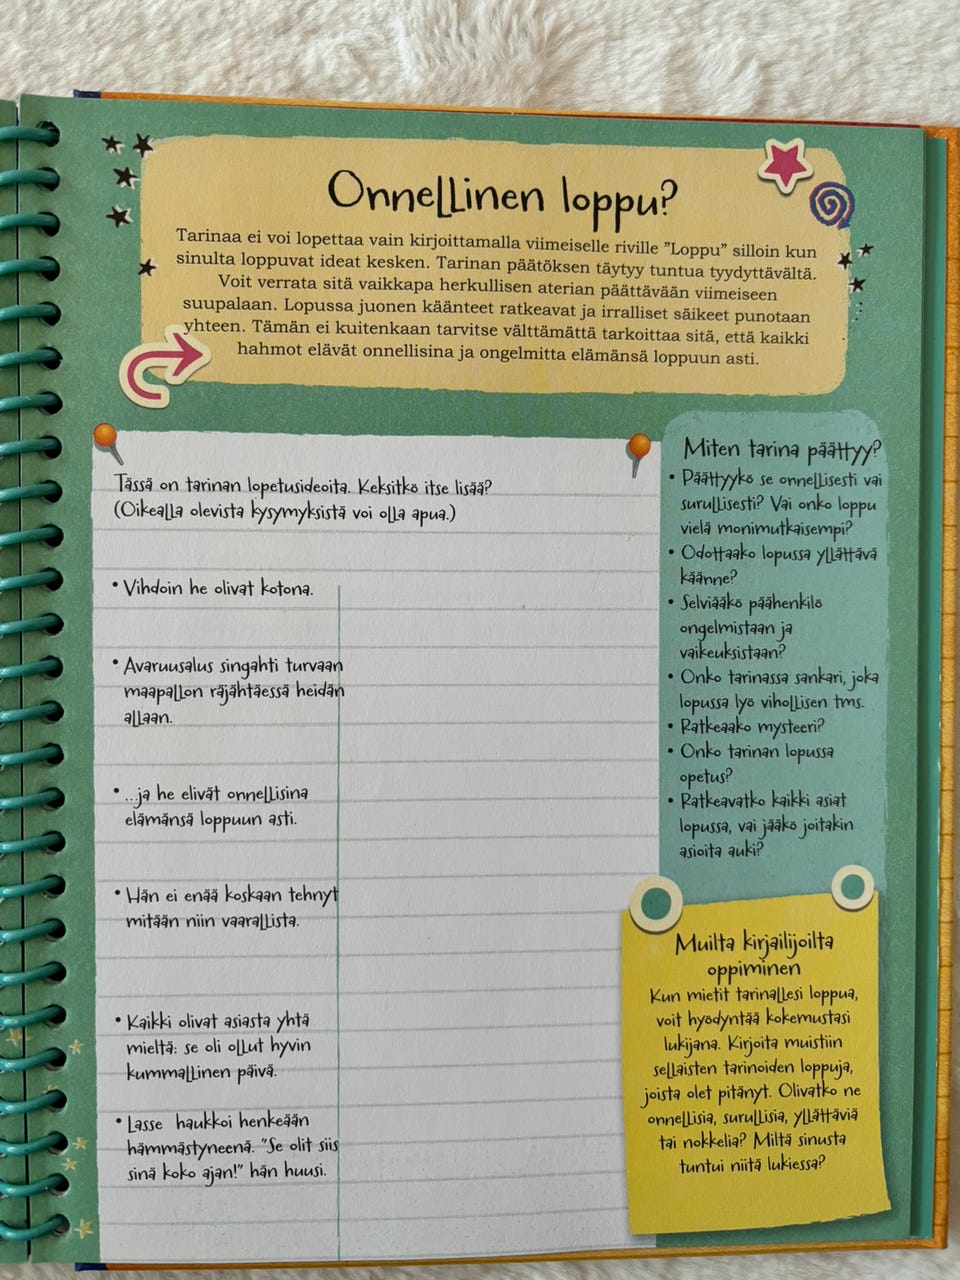 Onnellinen loppu?
Tarinaa ei voi lopettaa vain kirjoittamalla viimeiselle riville ”Loppu” silloin kun
sinulta loppuvat ideat kesken. Tarinan päätöksen täytyy tuntua tyydyttävältä.
Voit verrata sitä vaikkapa herkullisen aterian päättävään viimeiseen
suupalaan. Lopussa juonen käänteet ratkeavat ja irralliset säikeet punotaan
yhteen. Tämän ei kuitenkaan tarvitse välttämättä tarkoittaa sitä, että kaikki
hahmot elävät onnellisina ja ongelmitta elämänsä loppuun asti.
Tässä on tarinan lopetusideoita. Keksitkö itse lisää?
(Oikealla olevista kysymyksistä voi olla apua.)
• Vihdoin he olivat kotona.
• Avaruusalus singahti turvaan
maapallon räjähtäessä heidän
allaan.
• ...ja he elivät onnellisina
elämänsä loppuun asti.
• Hän ei enää koskaan tehnyt
mitään niin vaarallista.
• Kaikki olivat asiasta yhtä
mieltä: se oli ollut hyvin
kummallinen päivä.
• Lasse haukkoi henkeään
hämmästyneenä. ”Se olit siis
sinä koko ajan!” hän huusi.
Miten tarina päättyy?
• Päättyykö se onnellisesti vai
surullisesti? Vai onko loppu
vielä monimutkaisempi?
• Odottaako lopussa yllättävä
käänne?
• Selviääkö päähenkilö
ongelmistaan ja
vaikeuksistaan?
• Onko tarinassa sankari, joka
lopussa lyö vihollisen tms.
• Ratkeaako mysteeri?
• Onko tarinan lopussa
opetus?
• Ratkeavatko kaikki asiat
lopussa, vai jääkö joitakin
asioita auki?
Muilta kirjailijoilta
oppiminen
Kun mietit tarinallesi loppua,
voit hyödyntää kokemustasi
lukijana. Kirjoita muistiin
sellaisten tarinoiden loppuja,
joista olet pitänyt. Olivatko ne
onnellisia, surullisia, yllättäviä
tai nokkelia? Miltä sinusta
tuntui niitä lukiessa?